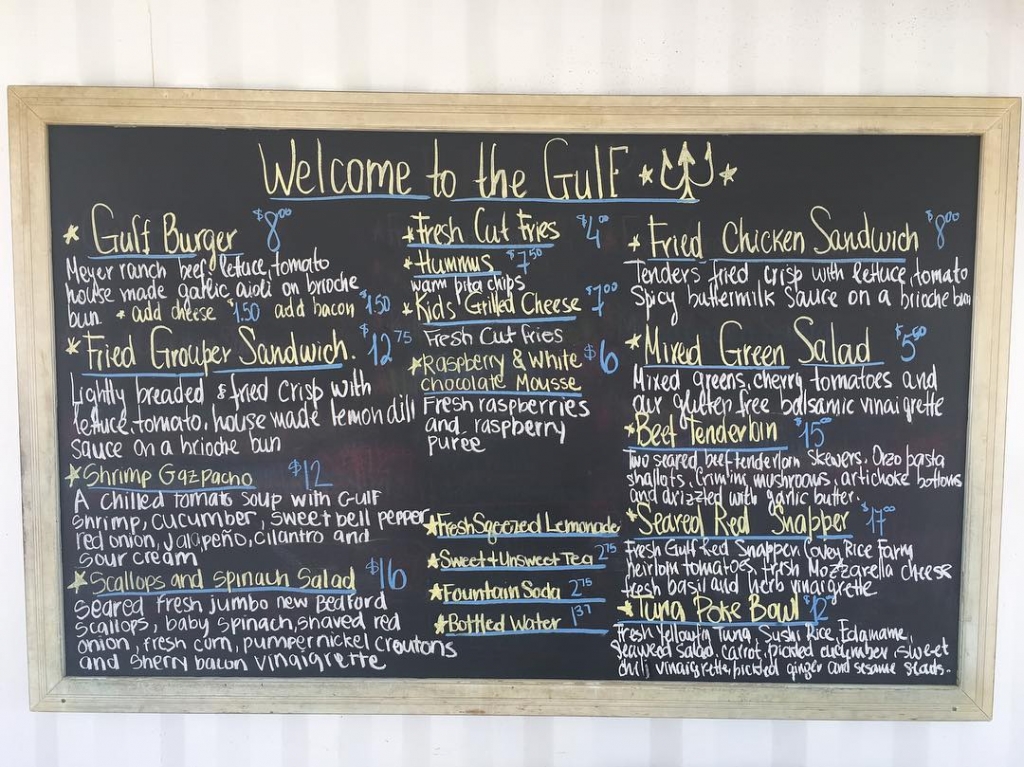 Welcome to the Gulf
Gulf Burger $8.00
Meyer ranch beef, lettuce, tomato
house made garlic aioli on brioche
bun * add cheese $1.50 add bacon $1.50
Fried Grouper Sandwich. $12.75
Lightly breaded & fried crisp with
lettuce, tomato, house made lemon dill
sauce on a brioche bun
Shrimp Gazpacho $12
A chilled tomato soup with Gulf
shrimp, cucumber, sweet bell pepper
red onion, jalapeño, cilantro and
sour cream
Scallops and spinach Salad $16
seared fresh jumbo new Bedford
scallops, baby spinach, shaved red
onion, fresh corn, pumpernickel croutons
and sherry bacon vinaigrette
Fresh Cut Fries $4.00
Hummus $7.50
warm pita chips
Kid's Grilled Cheese $7.00
Fresh Cut Fries
Raspberry & White $6
chocolate Mousse
Fresh raspberries
and raspberry
puree
Fresh Sqeezed Lemonade
Sweet + Unsweet Tea 2.75
Fountain Soda 2.75
Bottled Water 1.37
Fried Chicken Sandwich $8.00
Tenders fried crisp with lettuce, tomato
Spicy buttermilk sauce on a brioche bun
Mixed Green Salad $5.50
Mixed greens, cherry tomatoes and
our gluten free balsamic vinaigrette
Beef Tenderloin $15
Two seared beef tenderloin skewers. Orzo pasta
shallots, crimini mushrooms, artichoke bottoms
and drizzled with garlic butter.
Seared Red Snapper $17
Fresh Gulf Red Snapper, Covey Rice Farm
heirloom tomatoes, fresh Mozzarella cheese
fresh basil and herb vinaigrette
Tuna Poke Bowl $12
Fresh Yellowfin Tuna, Sushi Rice, Edamame,
seaweed salad, carrot, pickled cucumber, sweet
chili vinaigrette, pickled ginger and sesame seeds.